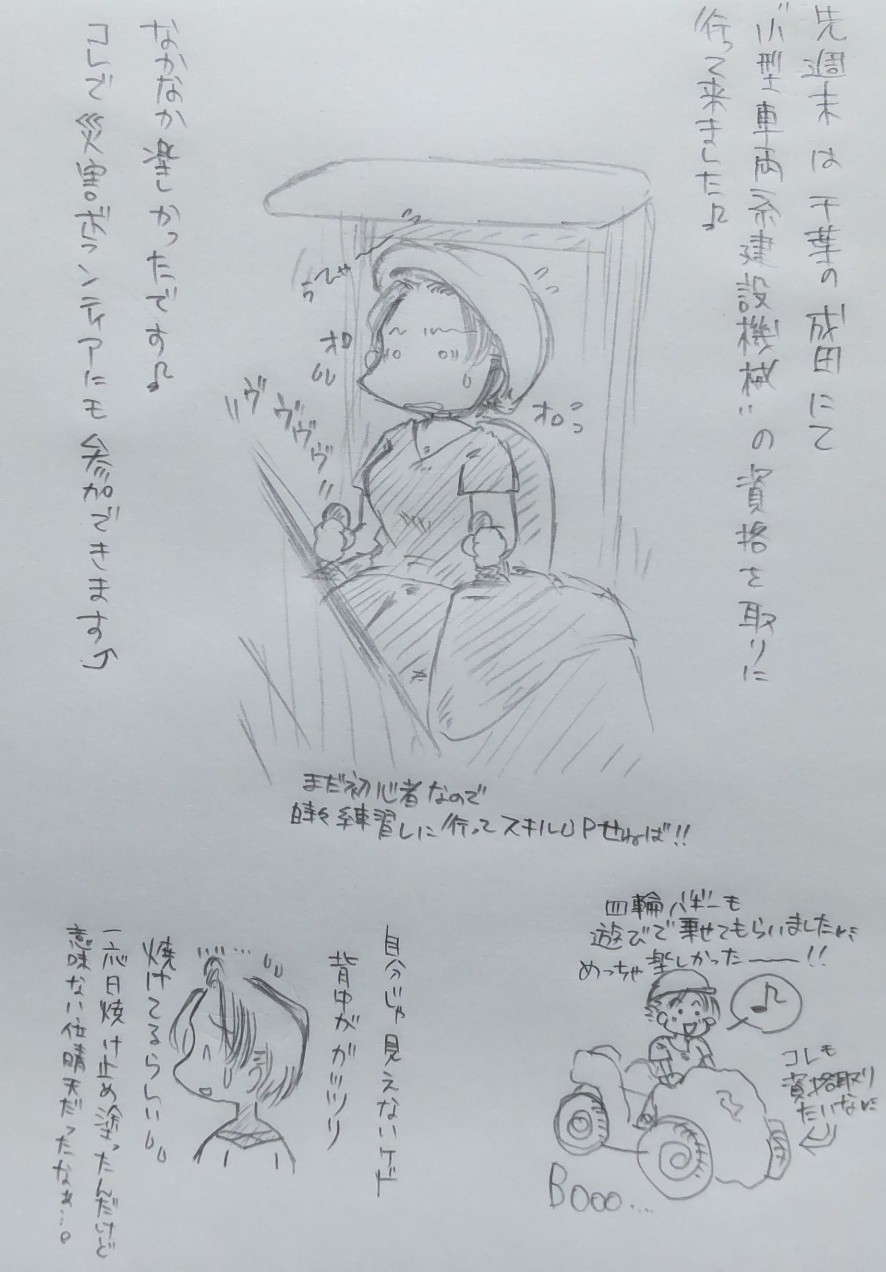 先週末は千葉の成田にて
"小型車両系建設機械"の資格を取りに
行って来ました♪
うひゃー
オロ
オロ
ヴヴヴヴヴ
なかなか楽しかったです♪
コレで災害ボランティアにも参加できます
まだ初心者なので
時々練習しに行ってスキルUPせねば!!
四輪バギーも
遊びで乗せてもらいました
めっちゃ楽しかったーー!!
♪
コレも
資格取り
たいな
Booo...
自分じゃ見えないケド
背中がガッツリ
焼けてるらしい
一応日焼け止め塗ったんだけど
意味ない位晴天だったなぁ…。